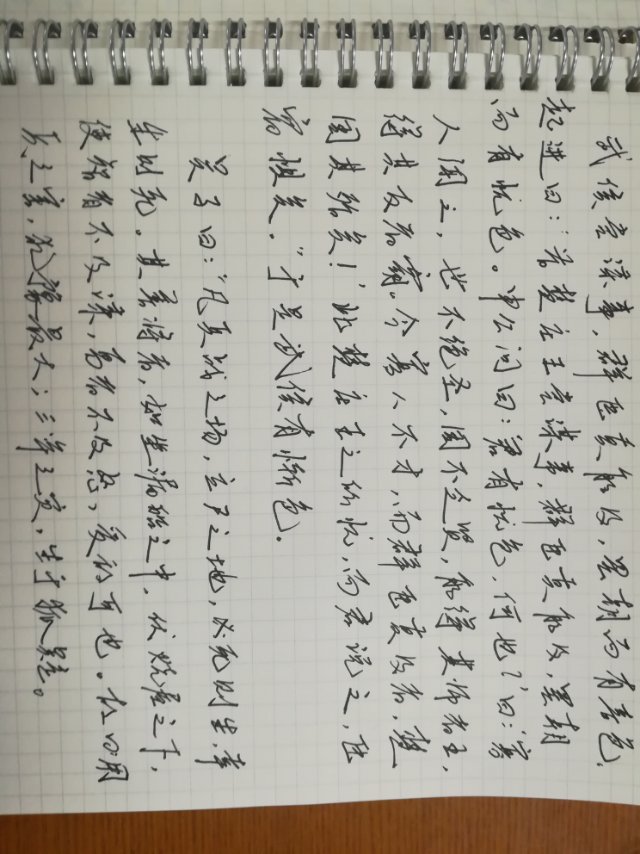 武侯尝谋事，群臣莫能及，罢朝而有喜色。
起进曰：“昔楚庄王尝谋事，群臣莫能及，罢朝
而有忧色。申公问曰：‘君有忧色，何也？’曰：‘寡
人闻之，世不绝圣，国不乏贤，能得其师者王，
得其友者霸。今寡人不才，而群臣莫及者，楚
国其殆矣！’此楚庄王之所忧，而君说之，臣
窃惧矣。”于是武侯有惭色。
吴子曰：“凡兵战之场，立尸之地，必死则生，幸
生则死。其善将者，如坐漏船之中，伏烧屋之下，
使智者不及谋，勇者不及怒，受敌可也。故曰用
兵之害，犹豫最大；三军之灾，生于狐疑。